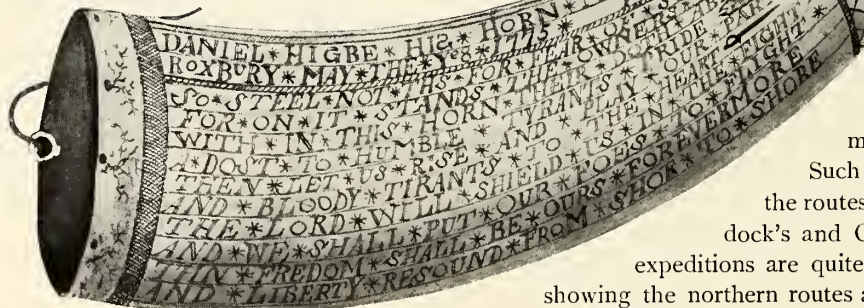 DANIEL * HIGBE * HIS * HORN *
ROXBURY * MAY * THE * YE 8 * 1775 *
SO * STEEL * NOT * THS * FOR * FEAR * OF * S
FOR * ON * IT * STANDS * THE * OWNERS
WITH * IN * THIS * HORN * THEIR * DOTH * AB
A * DOST * TO * HUMBLE * TYRANTS * PRIDE
THEN * LET * US * RISE * AND * PLAY * OUR * PAR
AND * BLOODY * TIRANTS * TO * THE * HEART *
THE * LORD * WILL * SHIELD * US * IN * THE * FIGHT *
AND * WE * SHALL * PUT * OUR * FOES * TO * FLIGHT
THN * FREDOM * SHALL * BE * OURS * FOREVERMORE
AND * LIBERTY * RESOUND * FROM * SHOR * TO * SHORE
m
Such
the routes
dock's and C
expeditions are quite
showing the northern routes